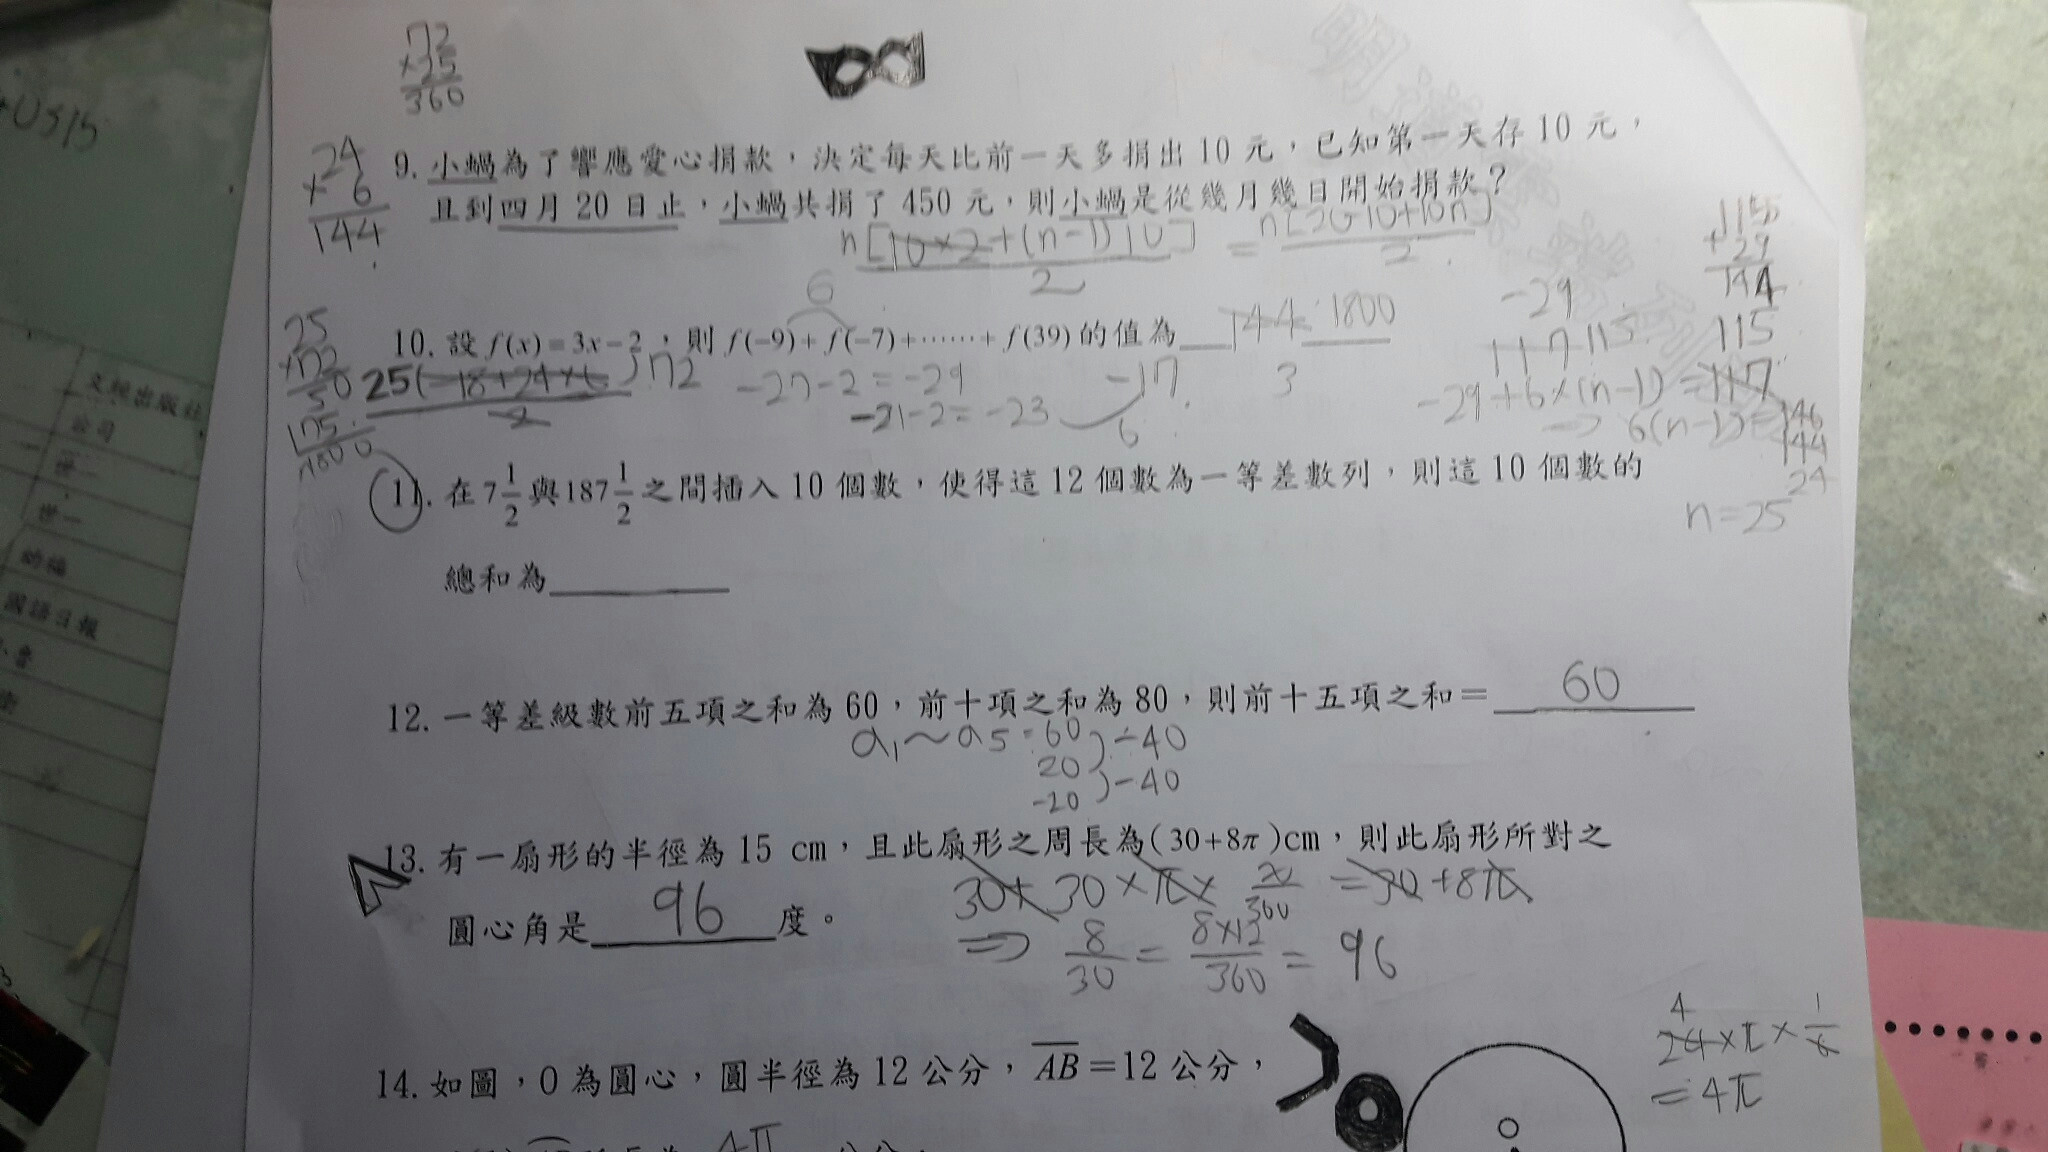 72
×25
360
24
× 6
144
9. 小蝸為了響應愛心捐款，決定每天比前一天多捐出10元，已知第一天存10元，
且到四月20日止，小蝸共捐了450元，則小蝸是從幾月幾日開始捐款？
n[10×2+(n-1)10]
2
=
n[20-10+10n]
2
115
+29
144
6
10. 設 f(x)=3x-2，則 f(-9)+f(-7)+……+f(39)的值為 144 1800
-29
117 115
115
25
×72
50
175
1800
25(-18+24×6)
2
72
-27-2=-29
-17
3
-29+6×(n-1)=117
-21-2=-23
6
⇒ 6(n-1)=146
144
24
n=25
11. 在7 1/2 與187 1/2 之間插入10個數，使得這12個數為一等差數列，則這10個數的
總和為
12. 一等差級數前五項之和為60，前十項之和為80，則前十五項之和＝ 60
a₁～a₅=60
)-40
20
)-40
-20
13. 有一扇形的半徑為15 cm，且此扇形之周長為(30+8π)cm，則此扇形所對之
30+30×π×
360
=30+8π
圓心角是 96 度。
⇒ 8/30 = 8×12/360 = 96
14. 如圖，O為圓心，圓半徑為12公分，AB=12公分，
4
24×π×1/6
=4π
O
4π
文經出版社
公司
世一
世一
幼福
國語日報